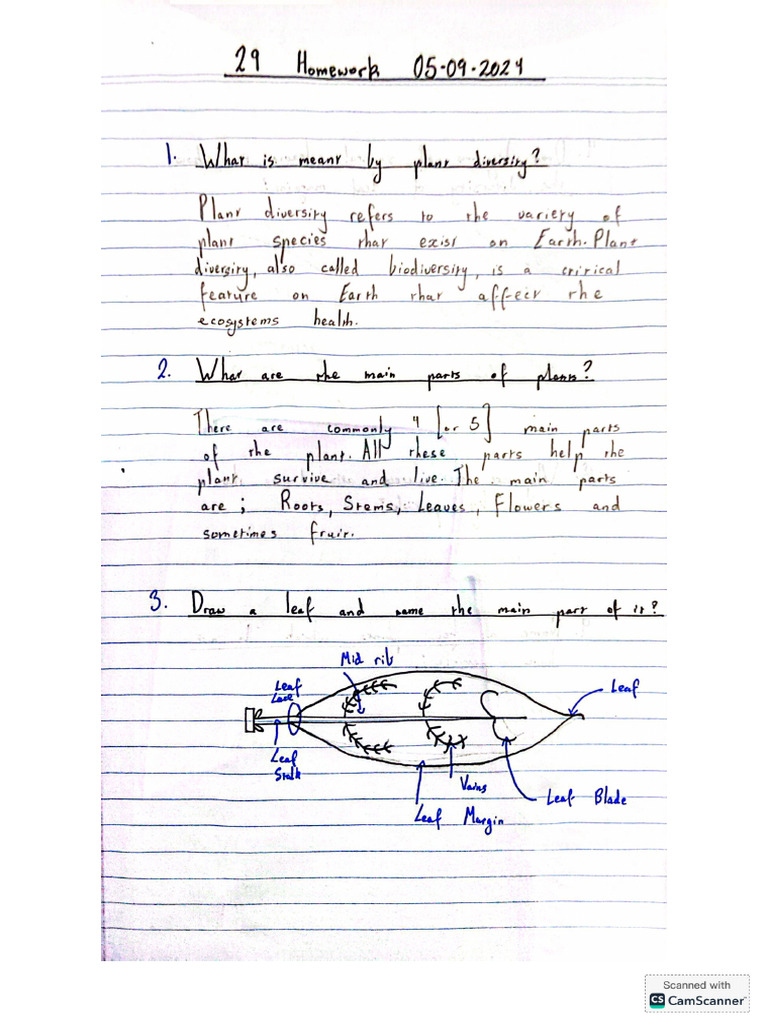 29 Homework 05-09-2024
1. What is meant by plant diversity?
Plant diversity refers to the variety of
plant species that exist on Earth. Plant
diversity, also called biodiversity, is a critical
feature on Earth that affect the
ecosystems health.
2. What are the main parts of plants?
There are commonly 4 [or 5] main parts
of the plant. All these parts help the
plant survive and live. The main parts
are ; Roots, Stems, Leaves, Flowers and
sometimes fruit.
3. Draw a leaf and name the main part of it?
Mid rib
Leaf
Leaf
Leaf
Stalk
Vains
Leaf Blade
Leaf Margin
Scanned with
CS CamScanner